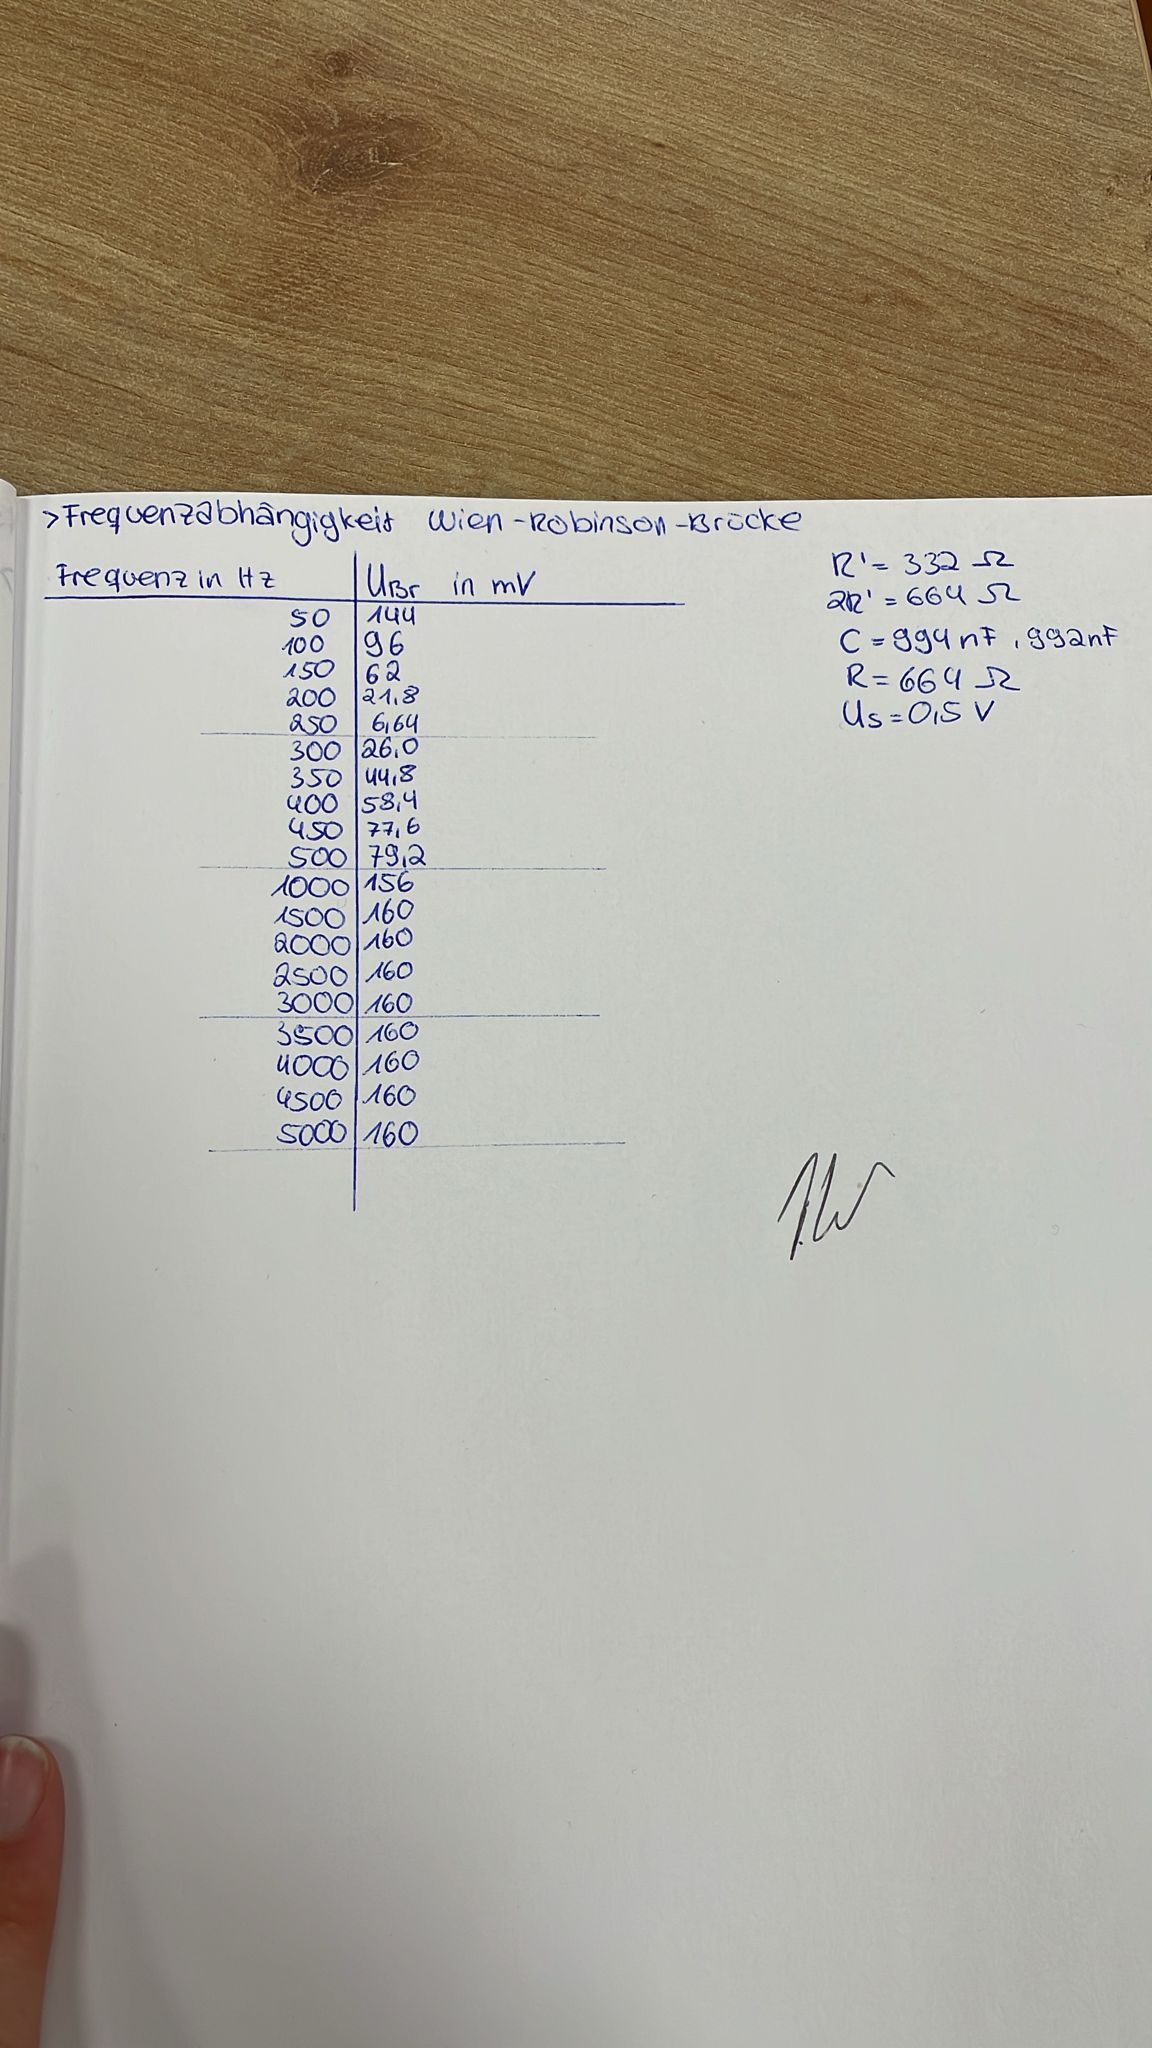 >Frequenzabhängigkeit Wien-Robinson-Brücke
Frequenz in Hz UBr in mV
50 144
100 96
150 62
200 21,8
250 6,64
300 26,0
350 44,8
400 58,4
450 77,6
500 79,2
1000 156
1500 160
2000 160
2500 160
3000 160
3500 160
4000 160
4500 160
5000 160
R' = 332 Ω
2R' = 664 Ω
C = 994 nF, 992nF
R = 664 Ω
Us = 0,5 V